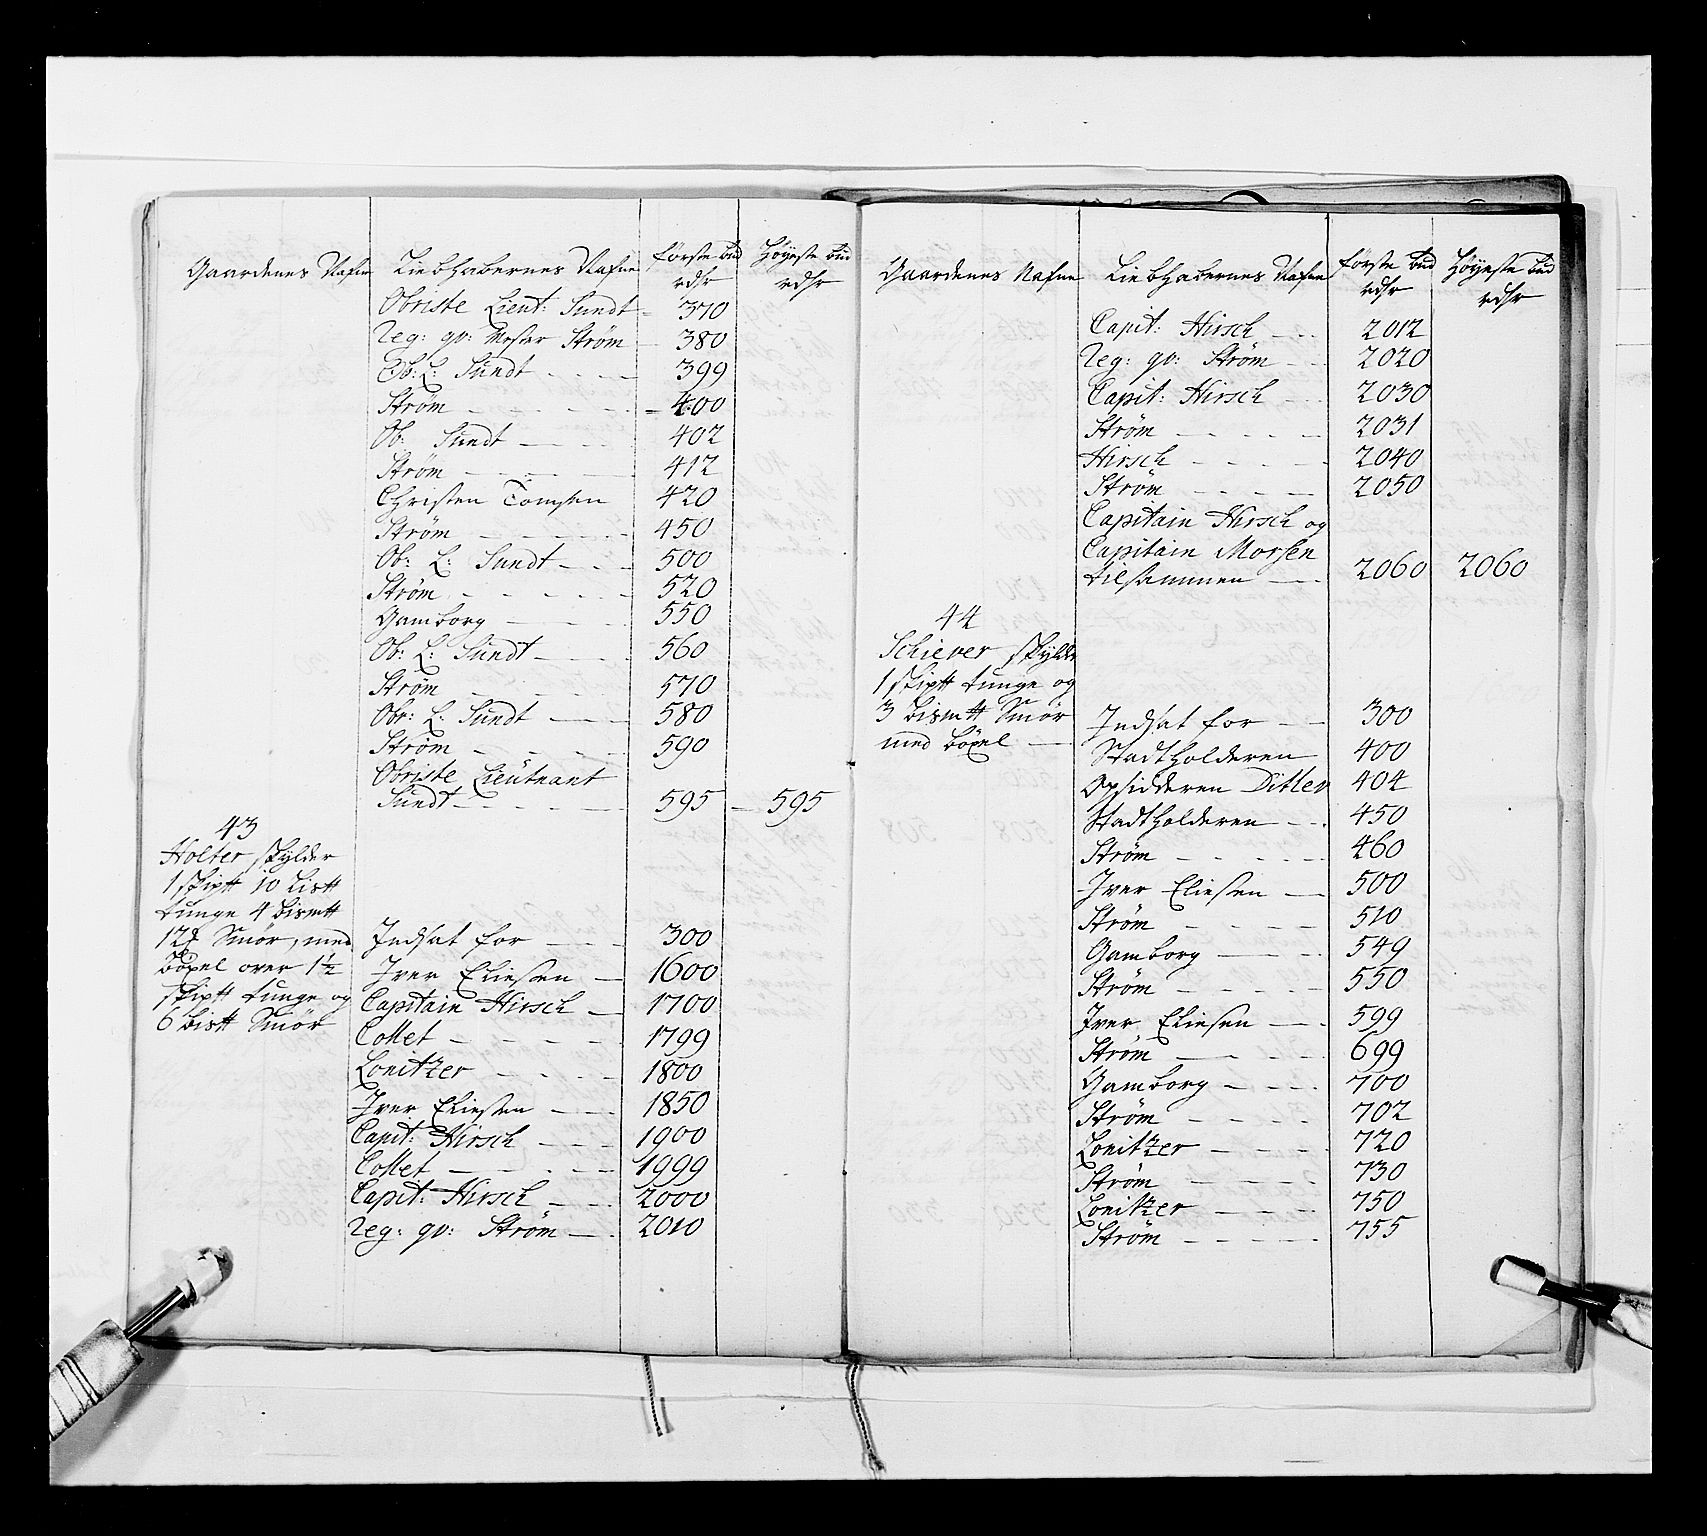 Gaardenes Nafne Liebhabernes Nafne første bud Høyeste bud
rdlr rdlr
Obriste Lieut: Sundt - 370
Reg: qv: Mester Strøm - 380
Ob: L: Sundt - - - - 399
Strøm - - - - - - 400
Ob: Sundt - - - - 402
Strøm - - - - - 412
Christen Tomsen 420
Strøm - - - - - - 450
Ob: L: Sundt - - - 500
Strøm - - - - - - 520
Gamborg - - - - 550
Ob: L: Sundt - - - - 560
Strøm - - - - - - 570
Obr: L: Sundt - - - 580
Strøm - - - - - 590
Obriste Lieutnant
Sundt - - - - - - 595 - 595
43
Holter skylder
1 skip℔ 10 lis℔
tunge 4 bism℔
12 Smør, med Indsat for - - - 300
bøxel over 1½ Iver Eliesen - 1600
skip℔ tunge og Capitain Hirsch - 1700
6 bis℔ Smør Collet - - - - - - 1799
Lonitzer - - - - - 1800
Iver Eliesen - - - 1850
Capit: Hirsch - - - 1900
Collet - - - - - 1999
Capit: Hirsch - - - 2000
Reg: qv: Strøm - - 2010
Gaardenes Nafne Liebhabernes Nafne første bud Høyeste bud
rdlr rdlr
Capit: Hirsch - - - 2012
Reg: qv: Strøm - - 2020
Capit: Hirsch - - 2030
Strøm - - - - - 2031
Hirsch - - - - - 2040
Strøm - - - - 2050
Capitain Hirsch og
Capitain Morsen
tilsammen - - 2060 2060
44
Schiever skylder
1 skip℔ tunge og
3 bism℔ Smør Indsat for - - 300
med bøxel - Stadtholderen 400
Opsidderen Ditlev 404
Stadtholderen - - 450
Strøm - - - - - 460
Iver Eliesen - 500
Strøm - - - - - 510
Gamborg - - - - 549
Strøm - - - - - 550
Iver Eliesen - - - 599
Strøm - - - - - 699
Gamborg - - - - 700
Strøm - - - - - 702
Lonitzer - - - - 720
Strøm - - - - - 730
Lonitzer - - - - 750
Strøm - - - - - 755